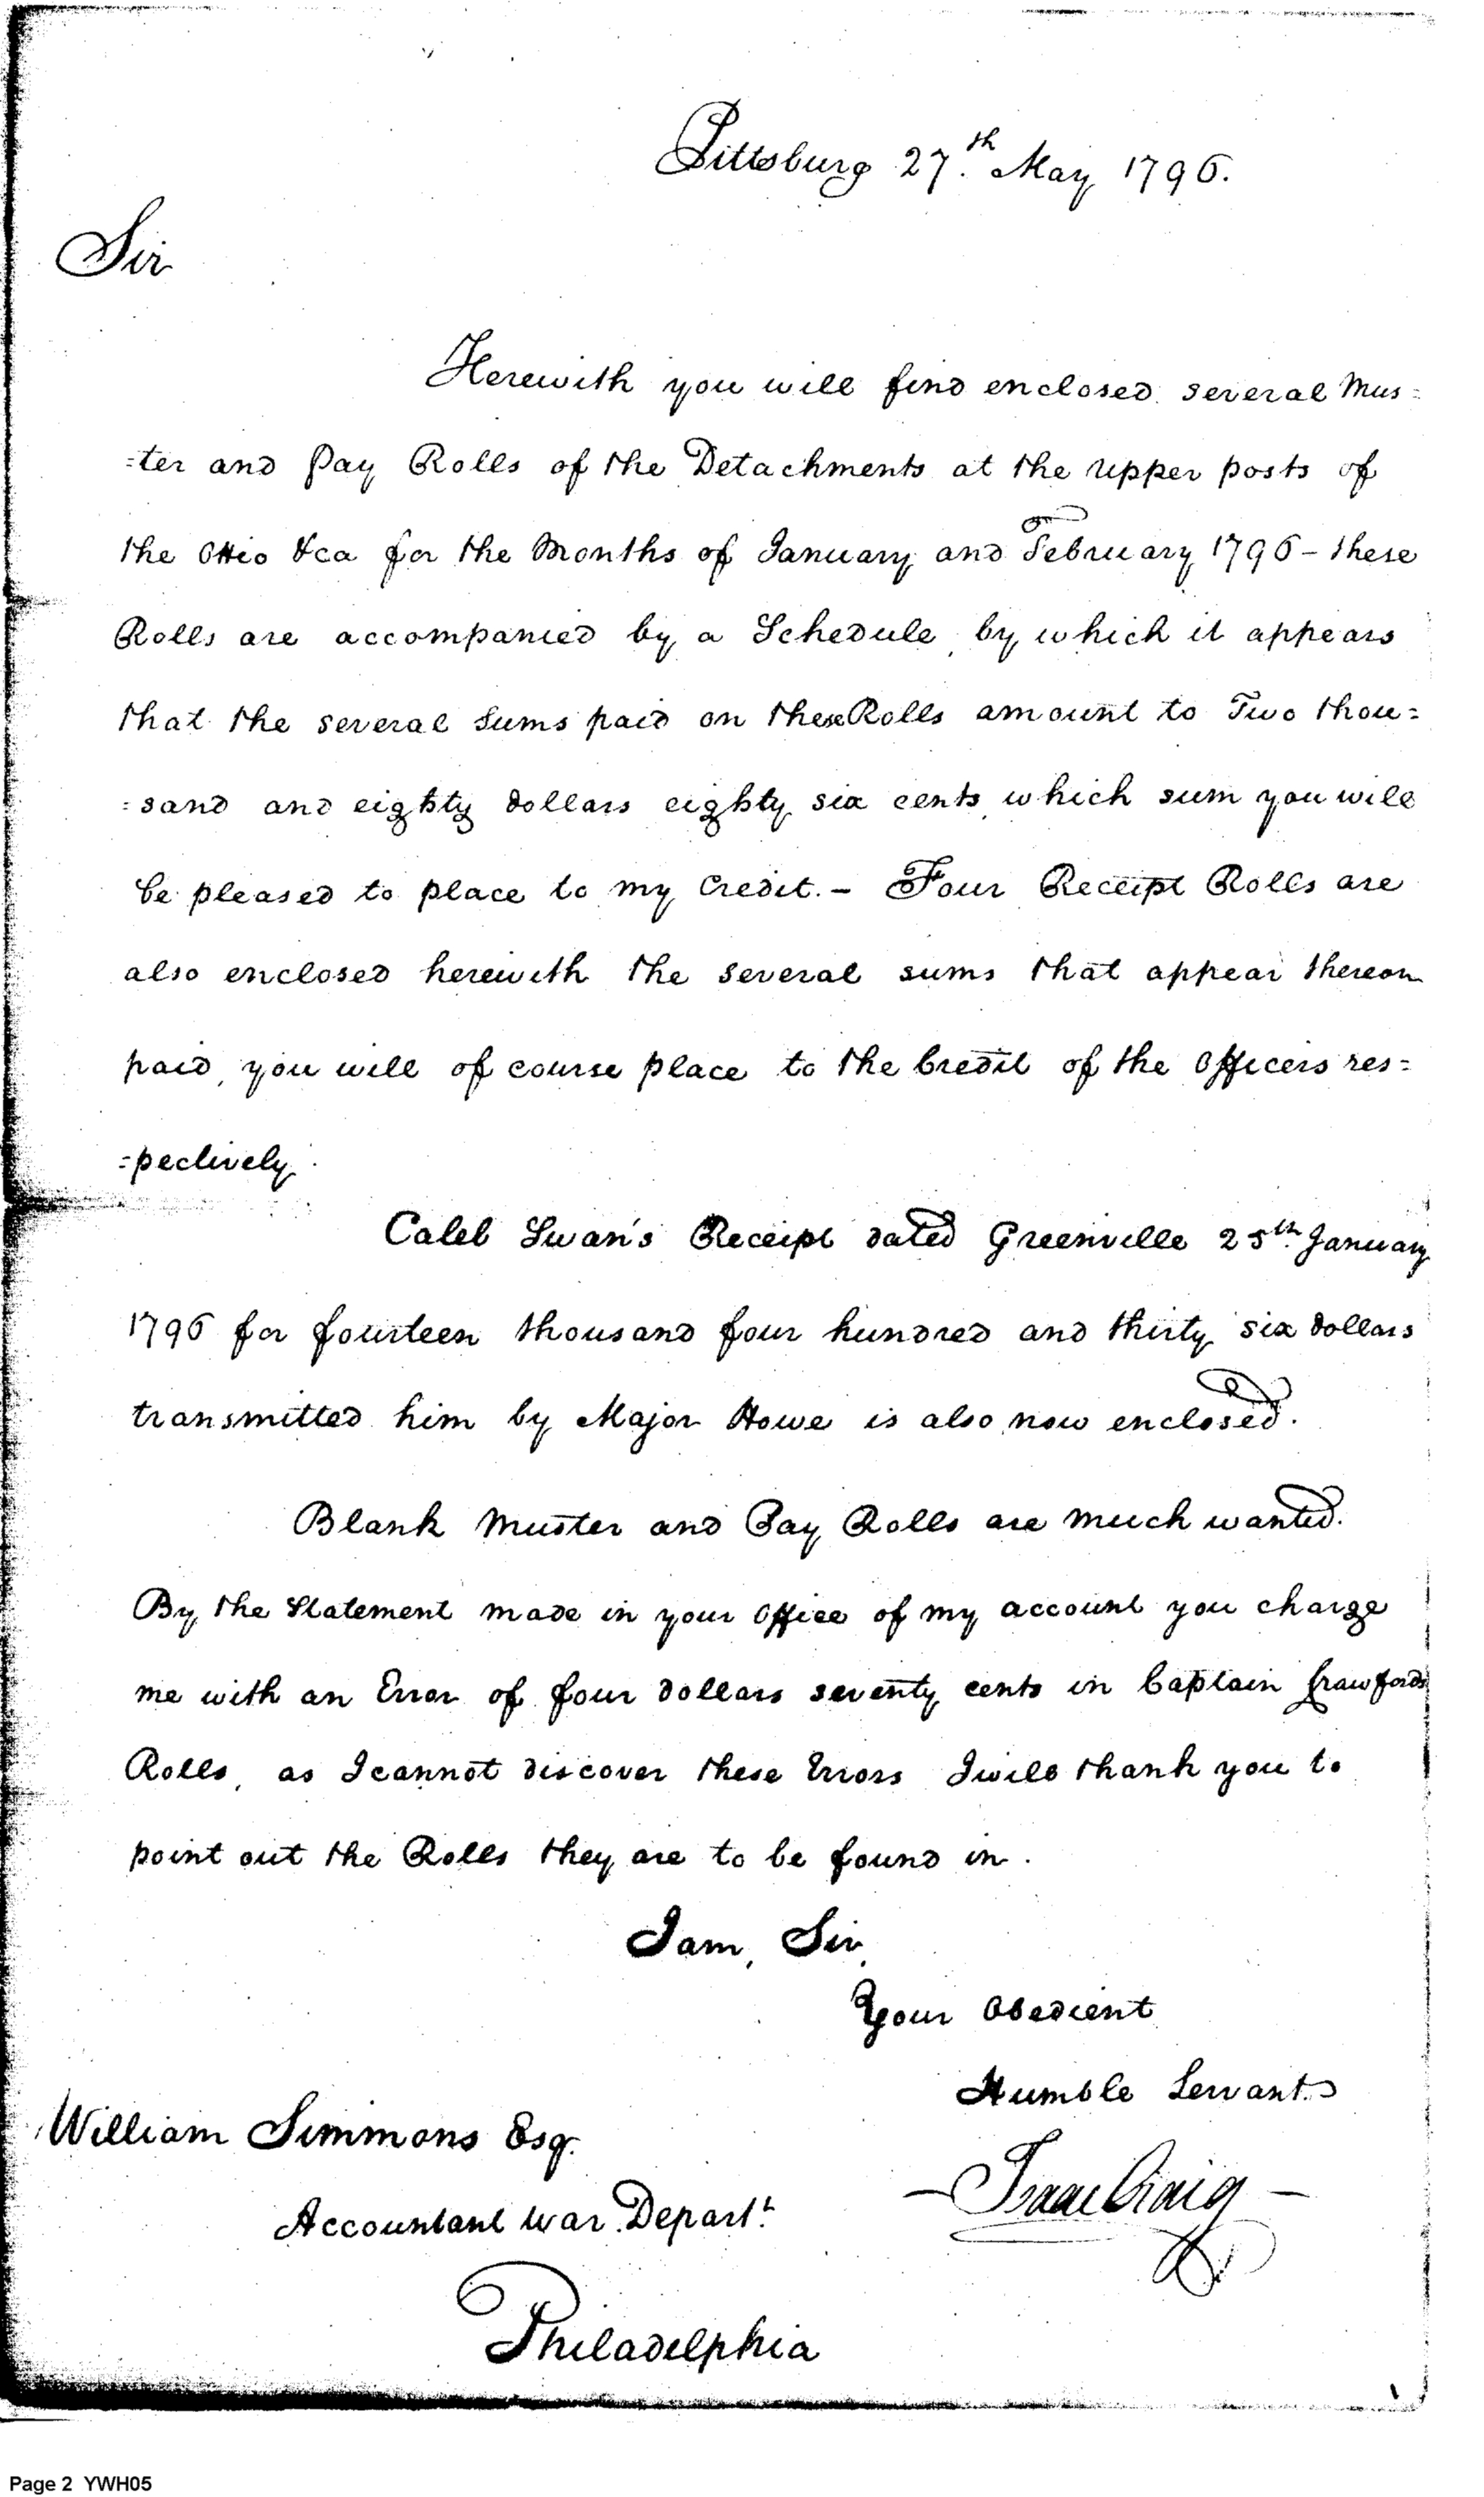 Pittsburg 27.th May 1796.
Sir
Herewith you will find enclosed several Mus=
=ter and Pay Rolls of the Detachments at the upper posts of
the Ohio &ca for the Months of January and February 1796 – these
Rolls are accompanied by a Schedule, by which it appears
that the several Sums paid on these Rolls amount to Two thou=
=sand and eighty dollars eighty six cents, which sum you will
be pleased to place to my Credit. – Four Receipt Rolls are
also enclosed herewith the several sums that appear thereon
paid, you will of course place to the Credit of the Officers res=
=pectively.
Caleb Swan's Receipt dated Greenville 25th. January
1796 for fourteen thousand four hundred and thirty six dollars
transmitted him by Major Howe is also now enclosed.
Blank Muster and Pay Rolls are much wanted.
By the Statement made in your Office of my account you charge
me with an Error of four dollars seventy cents in Captain Crawfords
Rolls, as I cannot discover these Errors I will thank you to
point out the Rolls they are to be found in.
I am, Sir,
Your Obedient
Humble Servant
William Simmons Esq.
Isaac Craig
Accountant War Depart.t
Philadelphia
Page 2 YWH05